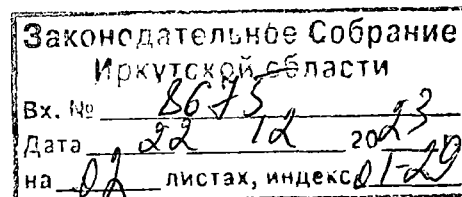 Законодательное Собрание
Иркутской области
Вх. № 8675
Дата 22 12 2023
на 02 листах, индекс 01-29